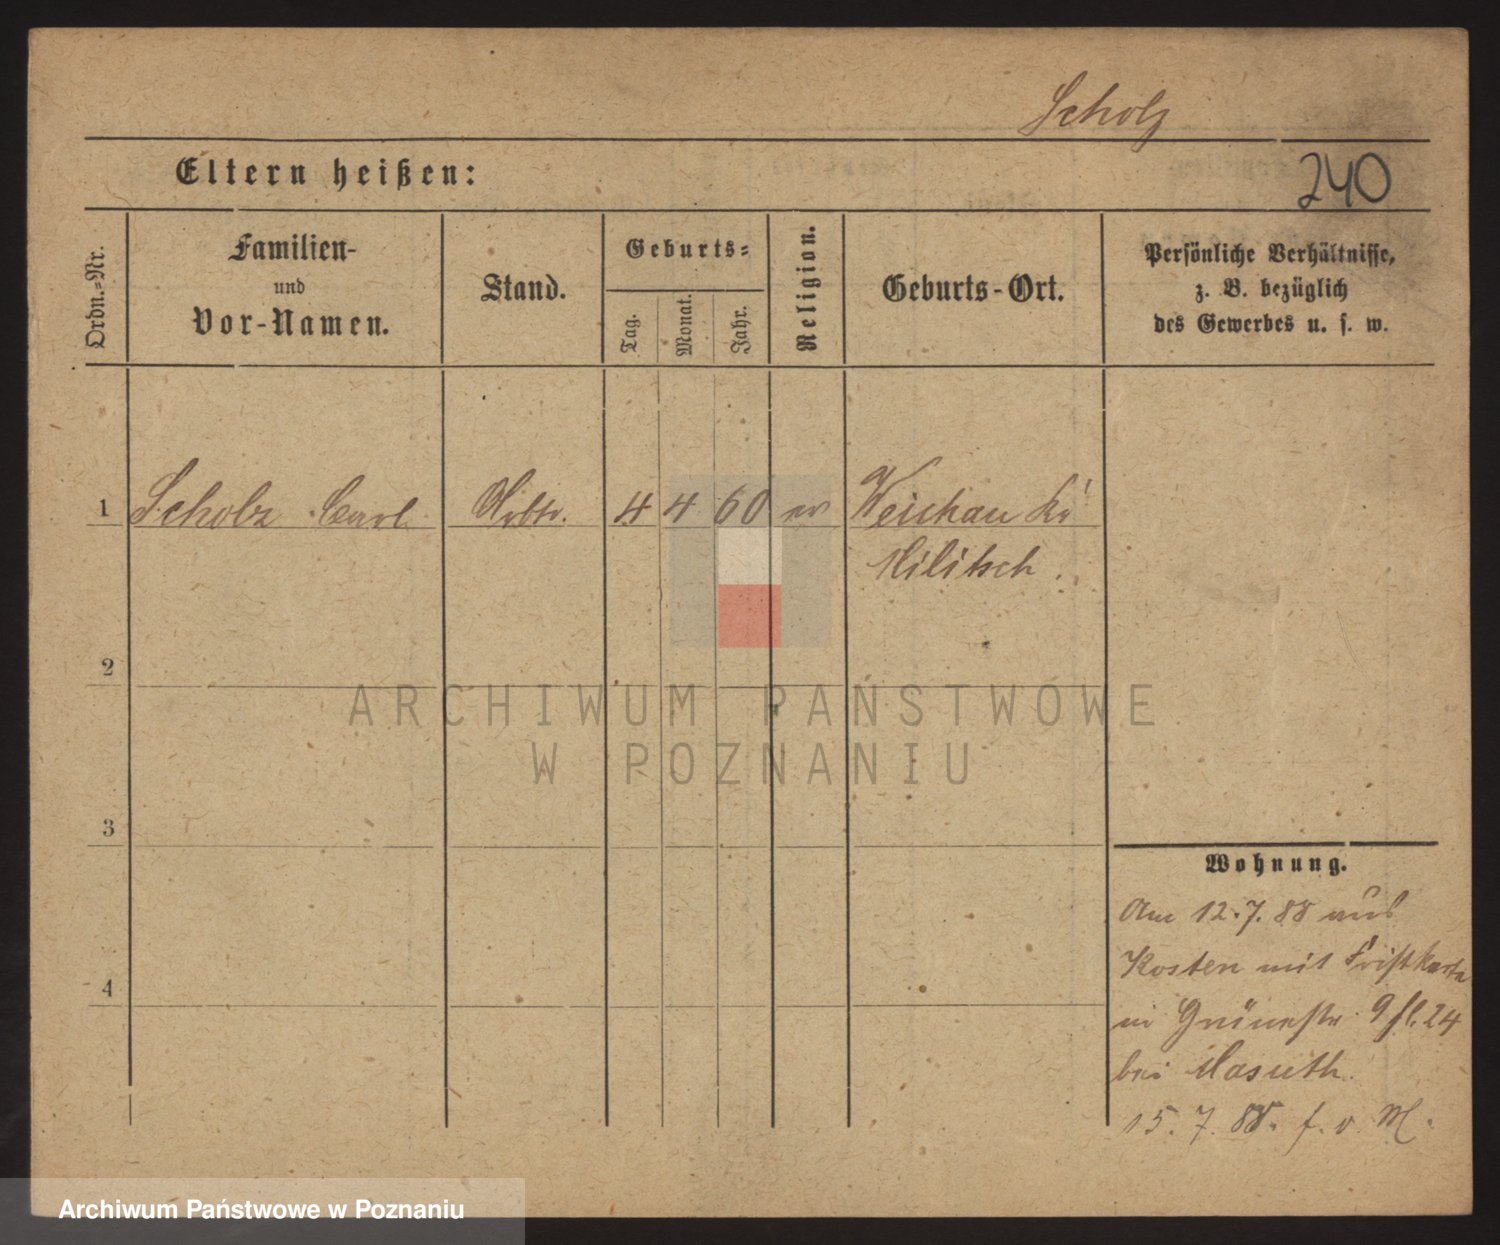 Scholz
Eltern heißen:
240
Ordn.-Nr.
Familien-
und
Vor-Namen.
Stand.
Geburts-
Tag.
Monat.
Jahr.
Religion.
Geburts-Ort.
Persönliche Verhältnisse,
z. B. bezüglich
des Gewerbes u. s. w.
1 Scholz Carl Arbtr. 4 4 60 ev Weichau Kr
Militsch.
2
3
4
Wohnung.
Am 12.7.88 aus
Kosten mit Fristkarte
in Grünestr. 9 bei
Masuth.
15.7.88. f. v. M.
ARCHIWUM PAŃSTWOWE
W POZNANIU
Archiwum Państwowe w Poznaniu